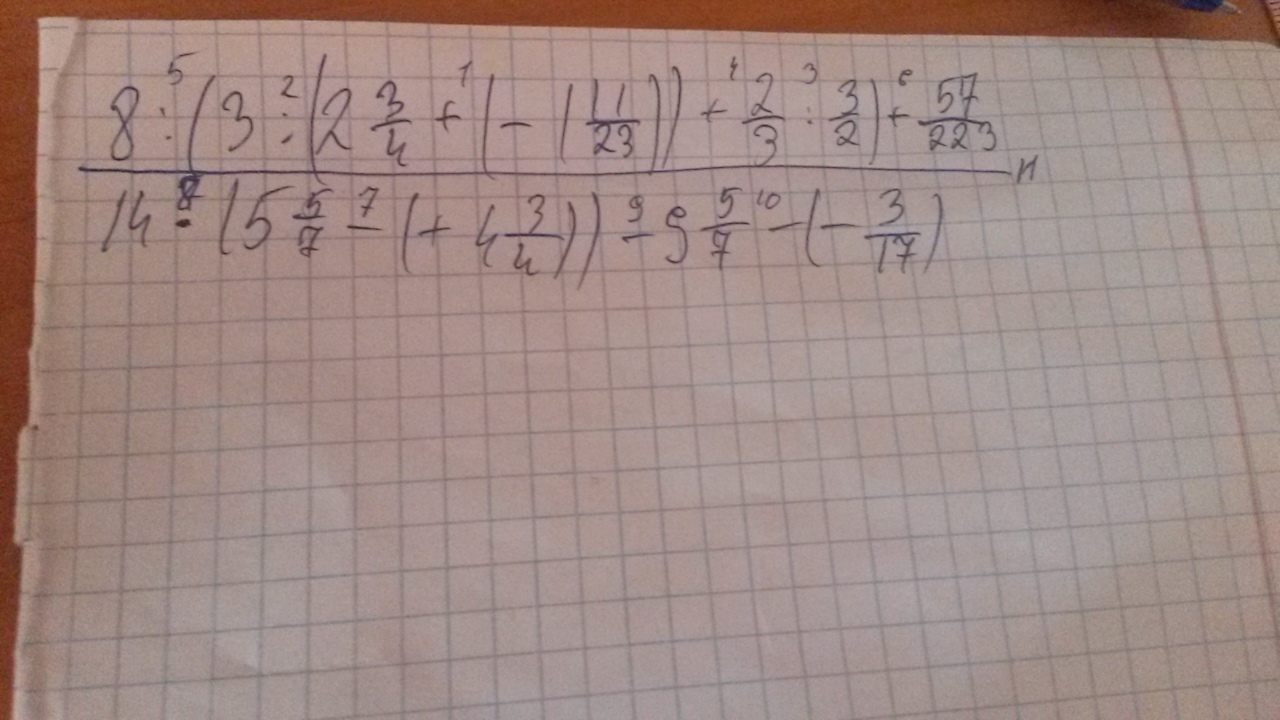 8 :⁵ (3 :² (2 3/4 +¹ (- (1 1/23)) +⁴ 2/3 :³ 3/2) +⁶ 57/223
=
14 ·⁸ (5 5/7 -⁷ (+ 4 3/4)) -⁹ 5 5/7 -¹⁰ (- 3/17)